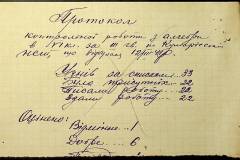 Протокол
контрольної роботи з алгебри
в № кл. за III чв. по
що відбулась 12/III
Учнів за списком .. 33
Було присутніх .. 22
Писали роботу .. 22
Здали роботу .. 22
Оцінено:
Відмінно .. 1
Добре .. 6